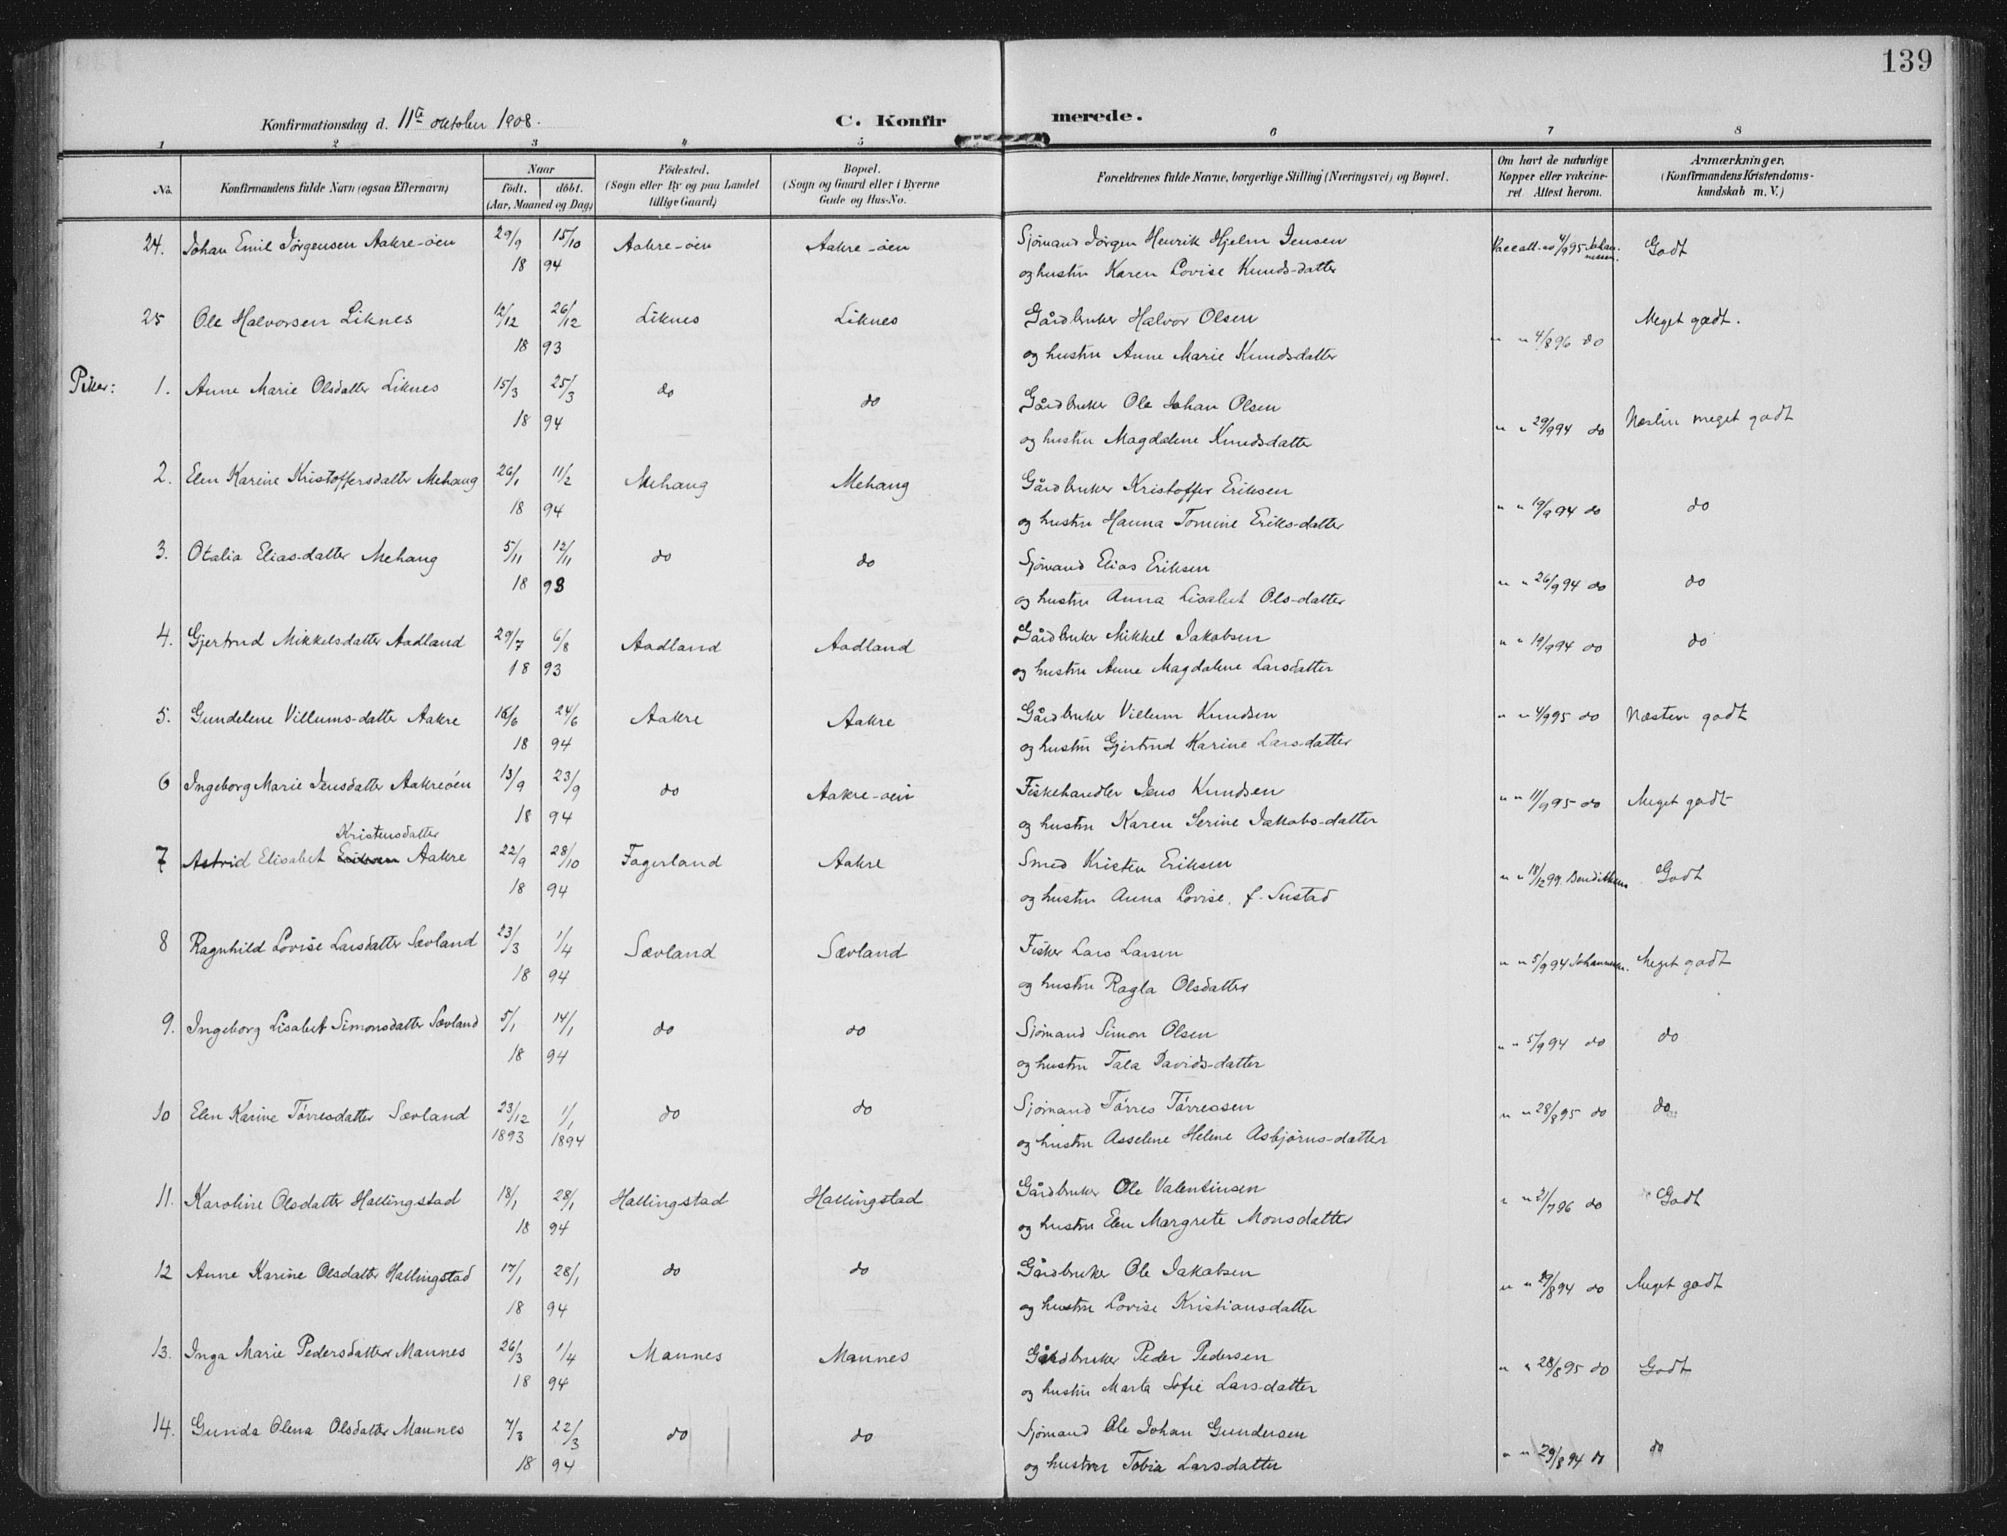 139
Konfirmationsdag d. 11te oktober 1908.
C. Konfirmerede.
1 2 3 4 5 6 7 8
No. Konfirmandens fulde Navn (ogsaa Efternavn) Naar født. døbt. (Aar, Maaned og Dag) Fødested. (Sogn eller By og paa Landet tillige Gaard) Bopæl. (Sogn og Gaard eller i Byerne Gade og Hus-No. Forældrenes fulde Navne, borgerlige Stilling (Næringsvei) og Bopæl. Om havt de naturlige Kopper eller vakcineret. Attest herom. Anmærkninger, (Konfirmandens Kristendomskundskab m. V.)
24. Johan Emil Jørgensen Aakre-øen 29/9 15/10 Aakre-øen Aakre-øen Sjømand Jørgen Henrik Hjelm Jensen Vacc att. 4/9 95 Johannessen. Godt
18 94 og hustru Karen Lovise Knuds-datter
25 Ole Halvorsen Liknes 12/12 26/12 Liknes Liknes Gårdbruker Halvor Olsen " " 4/8 96 do Meget godt.
18 93 og hustru Anne Marie Knudsdatter
Piker: 1. Anne Marie Olsdatter Liknes 15/3 25/3 do do Gårdbruker Ole Johan Olsen " " 29/9 94 do Næsten meget godt
18 94 og hustru Magdalene Knudsdatter
2. Elen Karine Kristoffersdatter Mehaug 26/1 11/2 Mehaug Mehaug Gårdbruker Kristoffer Eriksen " " 19/9 94 do do
18 94 og hustru Hanna Tomine Eriks-datter
3. Otalia Elias-datter Mehaug 5/11 12/11 do do Sjømand Elias Eriksen " " 26/9 94 do do
18 93 og hustru Anna Lisabet Ols-datter
4. Gjertrud Mikkelsdatter Aadland 29/7 6/8 Aadland Aadland Gårdbruker Mikkel Jakobsen " " 19/9 94 do do
18 93 og hustru Anne Magdalene Larsdatter
5. Gundelene Villums-datter Aakre 16/6 24/6 Aakre Aakre Gårdbruker Villum Knudsen " " 4/9 95 do Næsten godt
18 94 og hustru Gjertrud Karine Lars-datter
6 Ingeborg Marie Jensdatter Aakreøen 13/9 23/9 do Aakre-øen Fiskehandler Jens Knudsen " " 11/9 95 do Meget godt
18 94 og hustru Karen Serine Jakobs-datter
Kristensdatter
7 Astrid Elisabet Eriksen Aakre 22/9 28/10 Fagerland Aakre Smed Kristen Eriksen " " 18/12 99. Godt
18 94 og hustru Anna Lovise, f. Sustad
8 Ragnhild Lovise Larsdatter Sævland 23/3 1/4 Sævland Sævland Fisker Lars Larsen " " 5/9 94 Johannessen. Meget godt
18 94 og hustru Ragla Olsdatter
9. Ingeborg Lisabet Simonsdatter Sævland 5/1 14/1 do do Sjømand Simon Olsen " " 5/9 94 do do
18 94 og hustru Tala Davids-datter
10 Elen Karine Tørresdatter Sævland 23/12 1/1 do do Sjømand Tørres Tørressen " " 28/8 95 do do
1893 1894 og hustru Asselene Helene Asbjørns-datter
11. Karoline Olsdatter Hallingstad 18/1 28/1 Hallingstad Hallingstad Gårdbruker Ole Valentinsen " " 21/7 96 do Godt
18 94 og hustru Elen Margrete Monsdatter
12 Anne Karine Olsdatter Hallingstad 17/1 28/1 do do Gårdbruker Ole Jakobsen " " 29/8 94 do Meget godt
18 94 og hustru Lovise Kristiansdatter
13. Inga Marie Pedersdatter Mannes 26/3 1/4 Mannes Mannes Gårdbruker Peder Pedersen " " 28/8 95 do Godt
18 94 og hustru Marta Sofie Larsdatter
14. Gunda Olena Olsdatter Mannes 7/3 22/3 do do Sjømand Ole Johan Gundersen " " 29/8 94 do do
18 94 og hustru Tobia Larsdatter